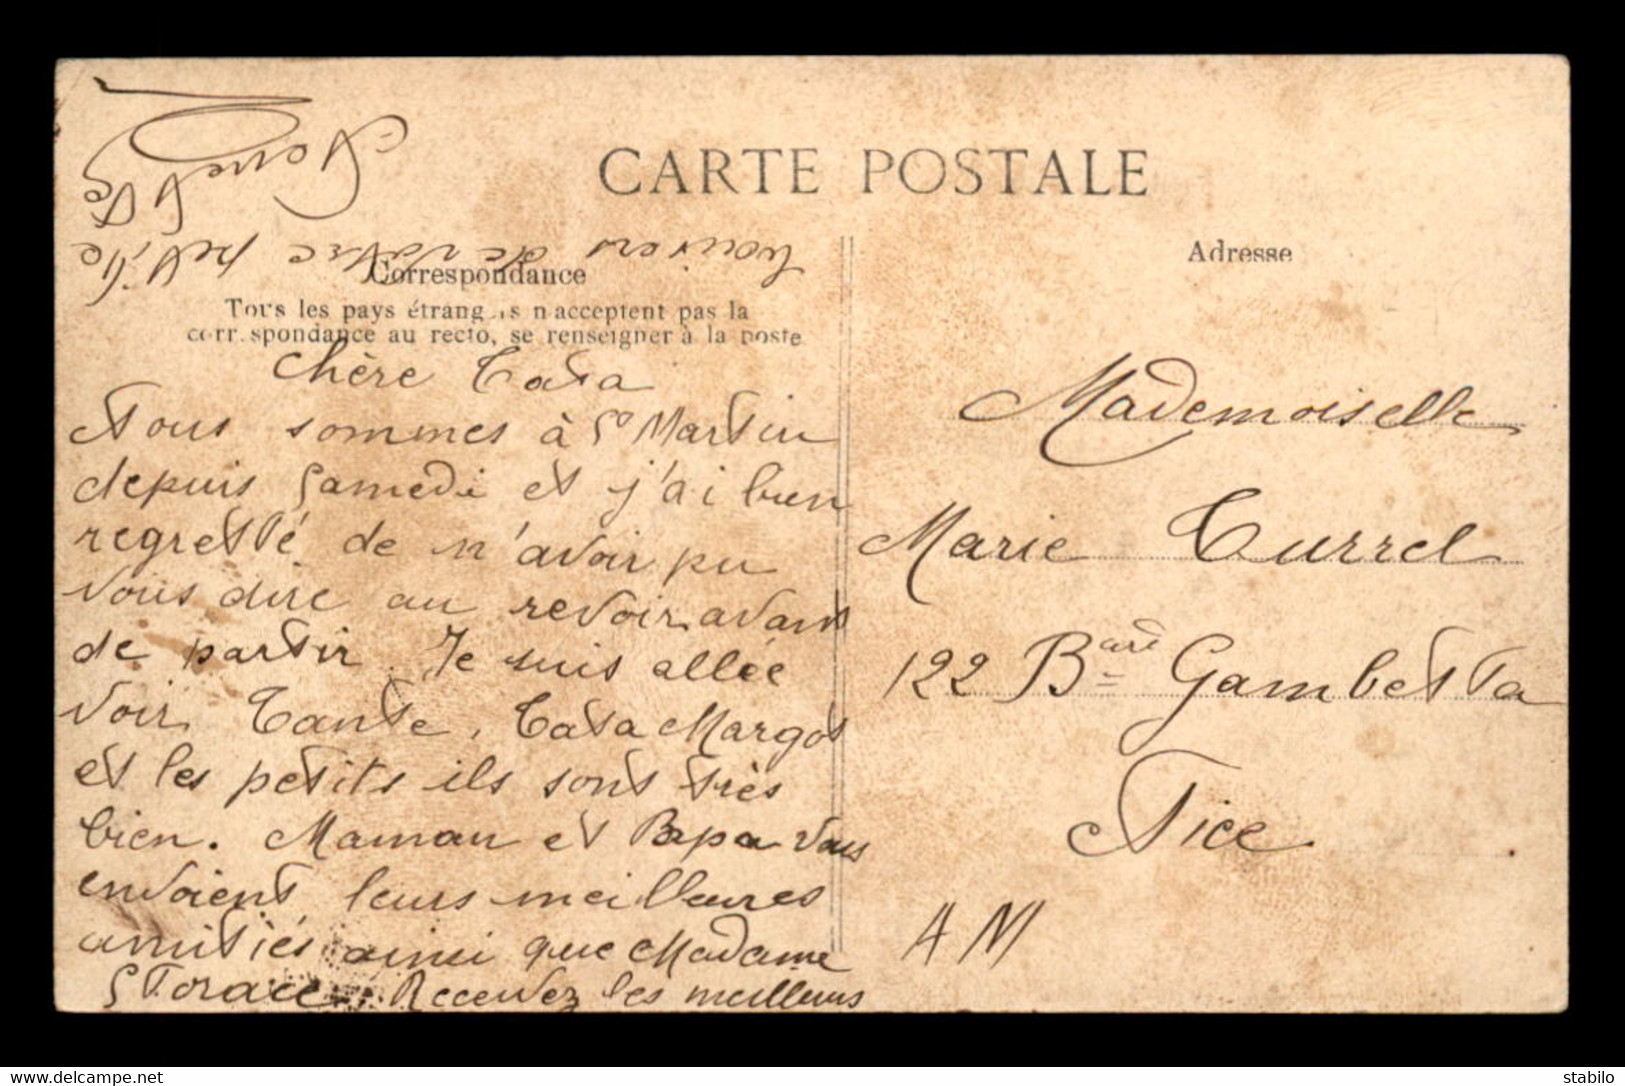 CARTE POSTALE
Correspondance
Tous les pays étrangers n'acceptent pas la
correspondance au recto, se renseigner à la poste
Chère Tata
Nous sommes à St Martin
depuis Samedi et j'ai bien
regretté de n'avoir pu
vous dire au revoir avant
de partir. Je suis allée
voir Tante, Tata Margot
et les petits ils sont très
bien. Maman et Papa vous
envoient leurs meilleures
amitiés ainsi que Madame
Storace. Recevez les meilleurs
de votre petite
Adresse
Mademoiselle
Marie Turrel
122 Bard Gambetta
Nice
AM
www.delcampe.net
stabilo